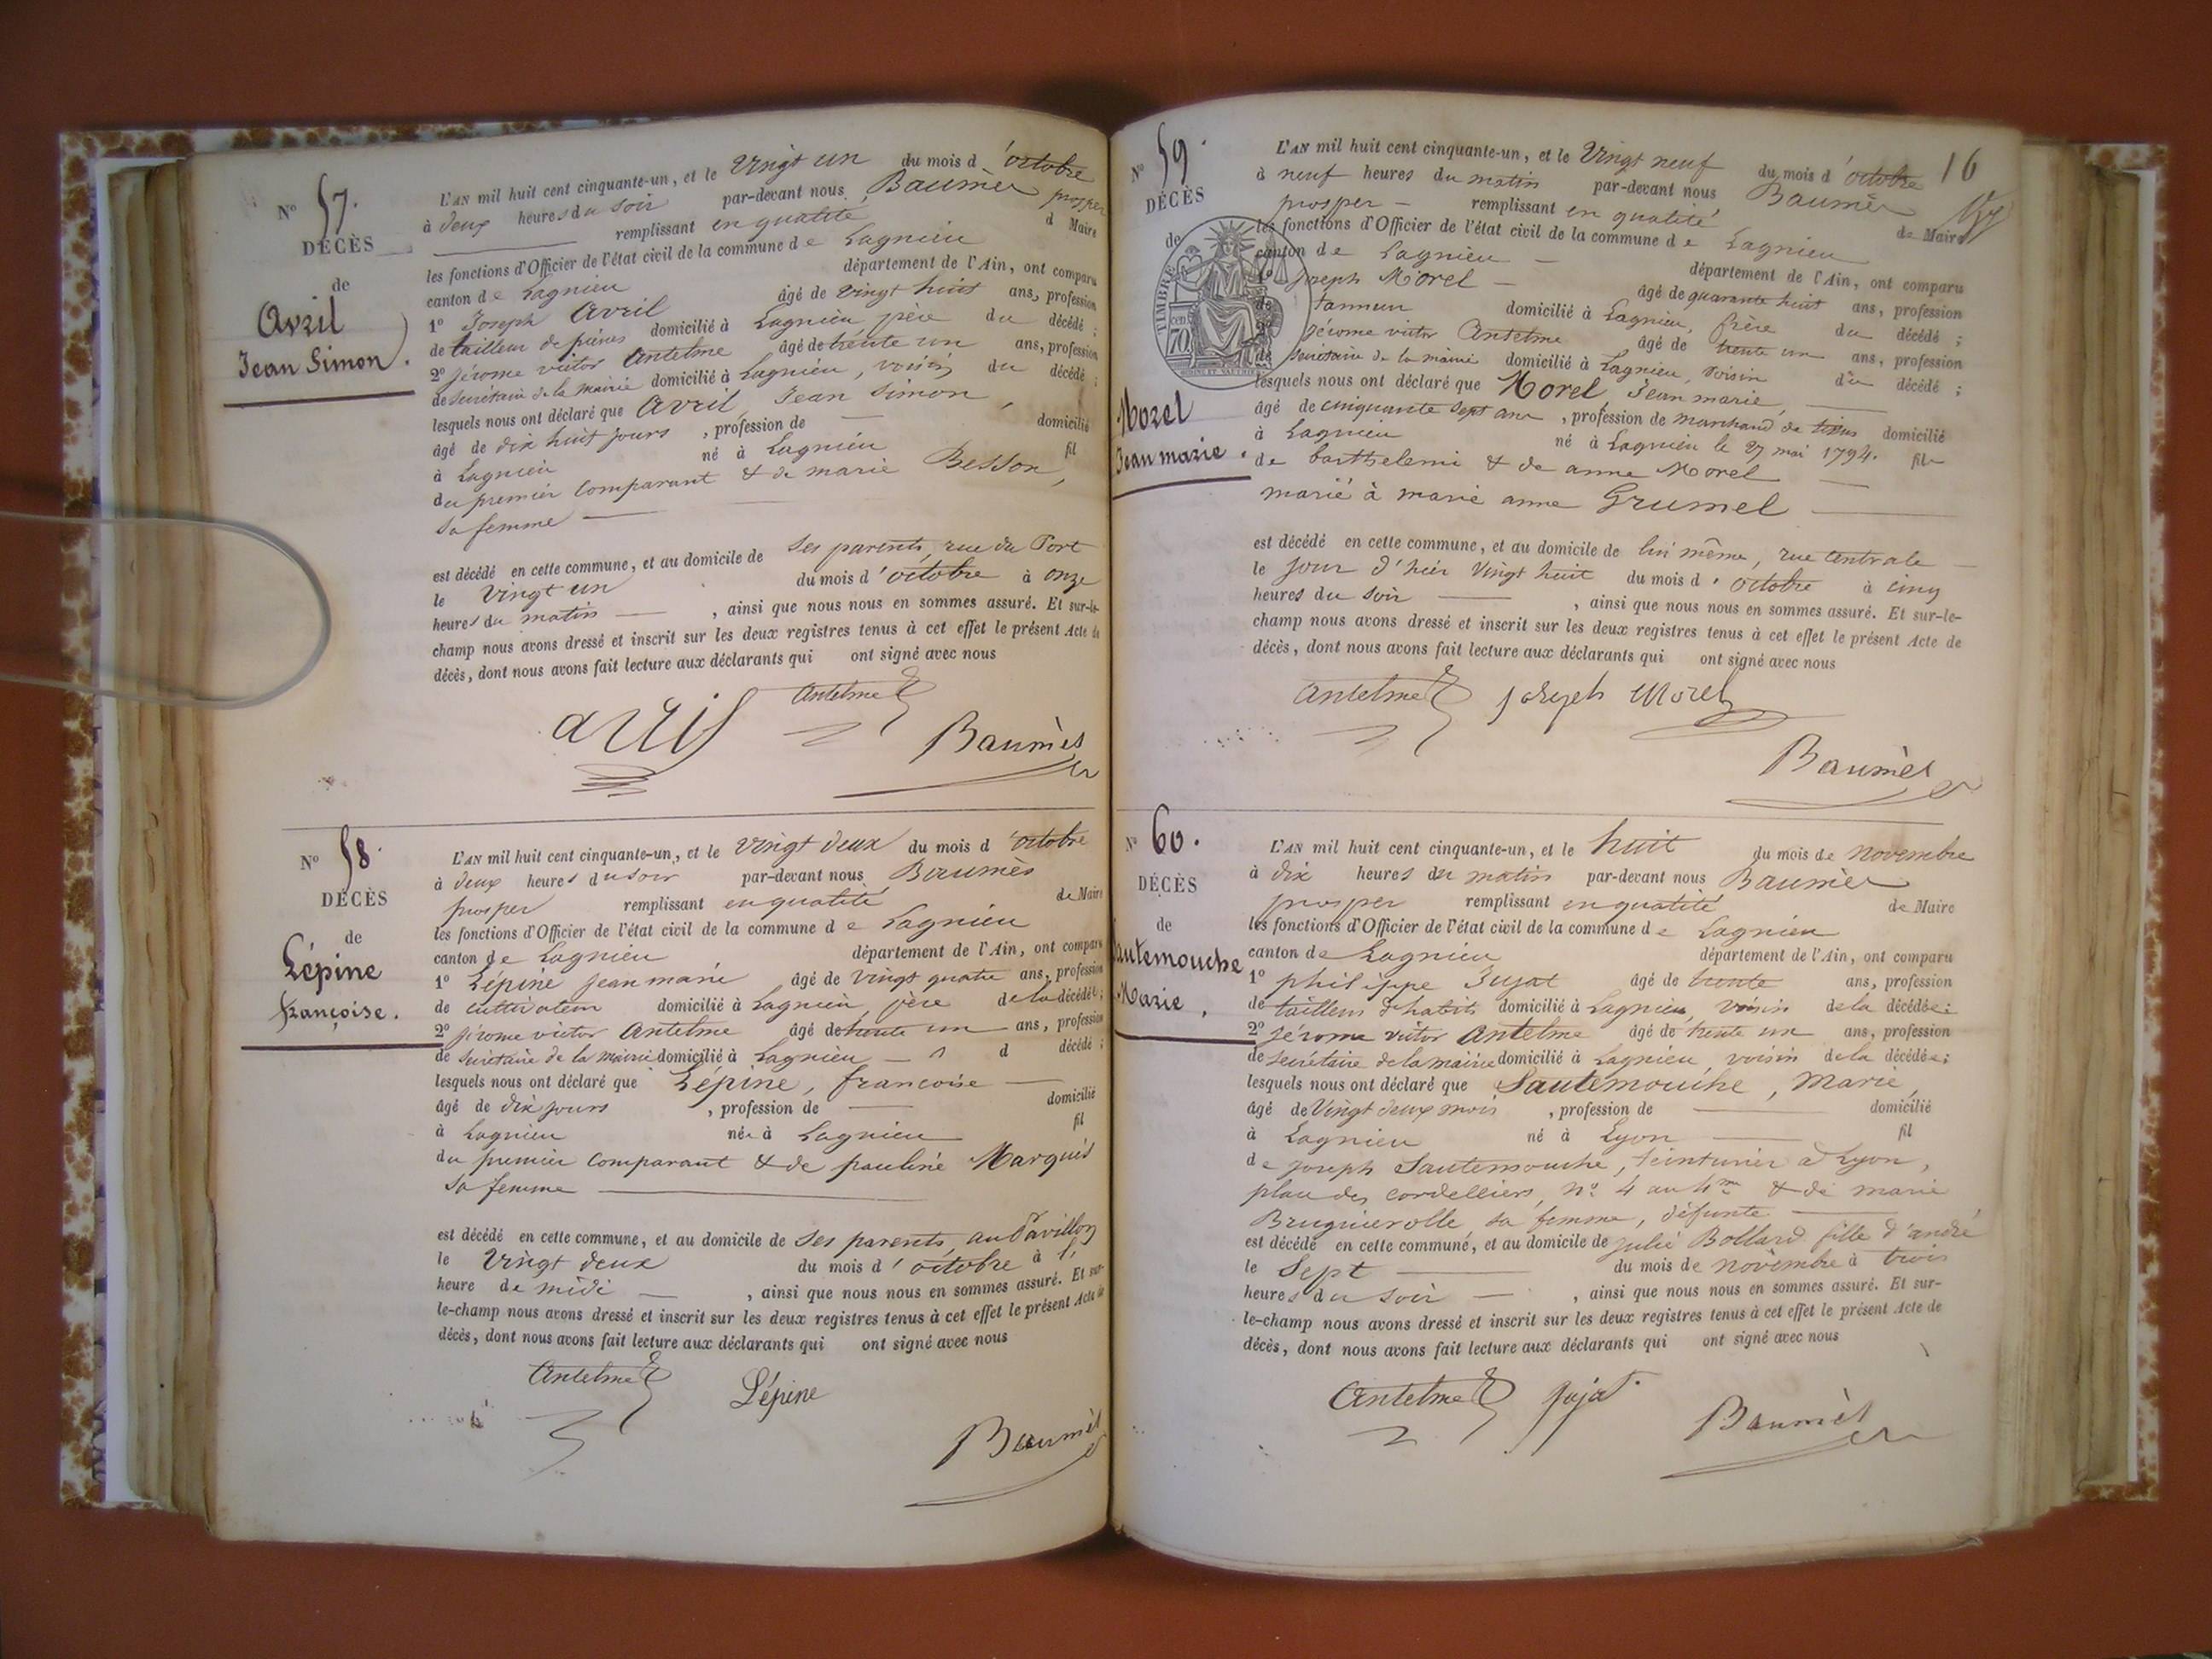 N° 57.
DÉCÈS
de
Avril
Jean Simon.
L'AN mil huit cent cinquante-un, et le Vingt un du mois d'octobre
à deux heures du soir par-devant nous Baumès prosper
remplissant en qualité d Maire
les fonctions d'Officier de l'état civil de la commune de Lagnieu
canton de Lagnieu département de l'Ain, ont comparu
1° Joseph Avril âgé de vingt huit ans, profession
de tailleur de pierres domicilié à Lagnieu, père du décédé ;
2° jérome victor Antelme âgé de trente un ans, profession
de secrétaire de la mairie domicilié à Lagnieu, voisin du décédé ;
lesquels nous ont déclaré que Avril, Jean Simon,
âgé de dix huit jours, profession de — domicilié
à Lagnieu né à Lagnieu fil
du premier comparant & de marie Besson,
sa femme —
est décédé en cette commune, et au domicile de ses parents, rue du Port
le vingt un du mois d'octobre à onze
heures du matin —, ainsi que nous nous en sommes assuré. Et sur-le-
champ nous avons dressé et inscrit sur les deux registres tenus à cet effet le présent Acte de
décès, dont nous avons fait lecture aux déclarants qui ont signé avec nous
Antelme
avril
Baumès
N° 58.
DÉCÈS
de
Lépine
françoise.
L'AN mil huit cent cinquante-un, et le vingt deux du mois d'octobre
à deux heures du soir par-devant nous Baumès
prosper remplissant en qualité de Maire
les fonctions d'Officier de l'état civil de la commune de Lagnieu
canton de Lagnieu département de l'Ain, ont comparu
1° Lépine jean marie âgé de vingt quatre ans, profession
de cultivateur domicilié à Lagnieu, père de la décédée ;
2° jérome victor Antelme âgé de trente un ans, profession
de secrétaire de la mairie domicilié à Lagnieu — d décédé ;
lesquels nous ont déclaré que Lépine, françoise —
âgé de dix jours, profession de — domicilié
à Lagnieu née à Lagnieu fil
du premier comparant & de pauline Marquis
sa femme —
est décédé en cette commune, et au domicile de ses parents, au Pavillon
le vingt deux du mois d'octobre à l'
heure de midi —, ainsi que nous nous en sommes assuré. Et sur-
le-champ nous avons dressé et inscrit sur les deux registres tenus à cet effet le présent Acte de
décès, dont nous avons fait lecture aux déclarants qui ont signé avec nous
Antelme
Lépine
Baumès
16
N° 59.
DÉCÈS
de
TIMBRE
70
Morel
Jean marie.
L'AN mil huit cent cinquante-un, et le Vingt neuf du mois d'octobre
à neuf heures du matin par-devant nous Baumès
prosper — remplissant en qualité de Maire
les fonctions d'Officier de l'état civil de la commune de Lagnieu
canton de Lagnieu — département de l'Ain, ont comparu
1° joseph Morel — âgé de quarante huit ans, profession
de tanneur domicilié à Lagnieu, frère du décédé ;
2° jérome victor Antelme âgé de trente un ans, profession
de secrétaire de la mairie domicilié à Lagnieu, voisin du décédé ;
lesquels nous ont déclaré que Morel, Jean marie, —
âgé de cinquante sept ans, profession de marchand de tissus domicilié
à Lagnieu né à Lagnieu le 27 mai 1794. fils
de barthelemi & de anne Morel —
marié à marie anne Grumel —
est décédé en cette commune, et au domicile de lui même, rue Centrale —
le jour d'hier vingt huit du mois d'octobre à cinq
heures du soir —, ainsi que nous nous en sommes assuré. Et sur-le-
champ nous avons dressé et inscrit sur les deux registres tenus à cet effet le présent Acte de
décès, dont nous avons fait lecture aux déclarants qui ont signé avec nous
Antelme joseph Morel
Baumès
N° 60.
DÉCÈS
de
autemouche
Marie,
L'AN mil huit cent cinquante-un, et le huit du mois de novembre
à dix heures du matin par-devant nous Baumès
prosper remplissant en qualité de Maire
les fonctions d'Officier de l'état civil de la commune de Lagnieu
canton de Lagnieu département de l'Ain, ont comparu
1° philippe Jujat âgé de trente ans, profession
de tailleur d'habits domicilié à Lagnieu, voisin de la décédée ;
2° jérome victor Antelme âgé de trente un ans, profession
de secrétaire de la mairie domicilié à Lagnieu, voisin de la décédée ;
lesquels nous ont déclaré que Sautemouche, Marie,
âgé de vingt deux mois, profession de — domicilié
à Lagnieu né à Lyon — fil
de joseph Sautemouche, teinturier à Lyon,
place des cordelliers, n° 4 au 4me & de marie
Bruguierolle, sa femme, défunte —
est décédé en cette commune, et au domicile de julie Bollard fille d'andré
le Sept — du mois de novembre à trois
heures du soir —, ainsi que nous nous en sommes assuré. Et sur-
le-champ nous avons dressé et inscrit sur les deux registres tenus à cet effet le présent Acte de
décès, dont nous avons fait lecture aux déclarants qui ont signé avec nous
Antelme Jujat
Baumès